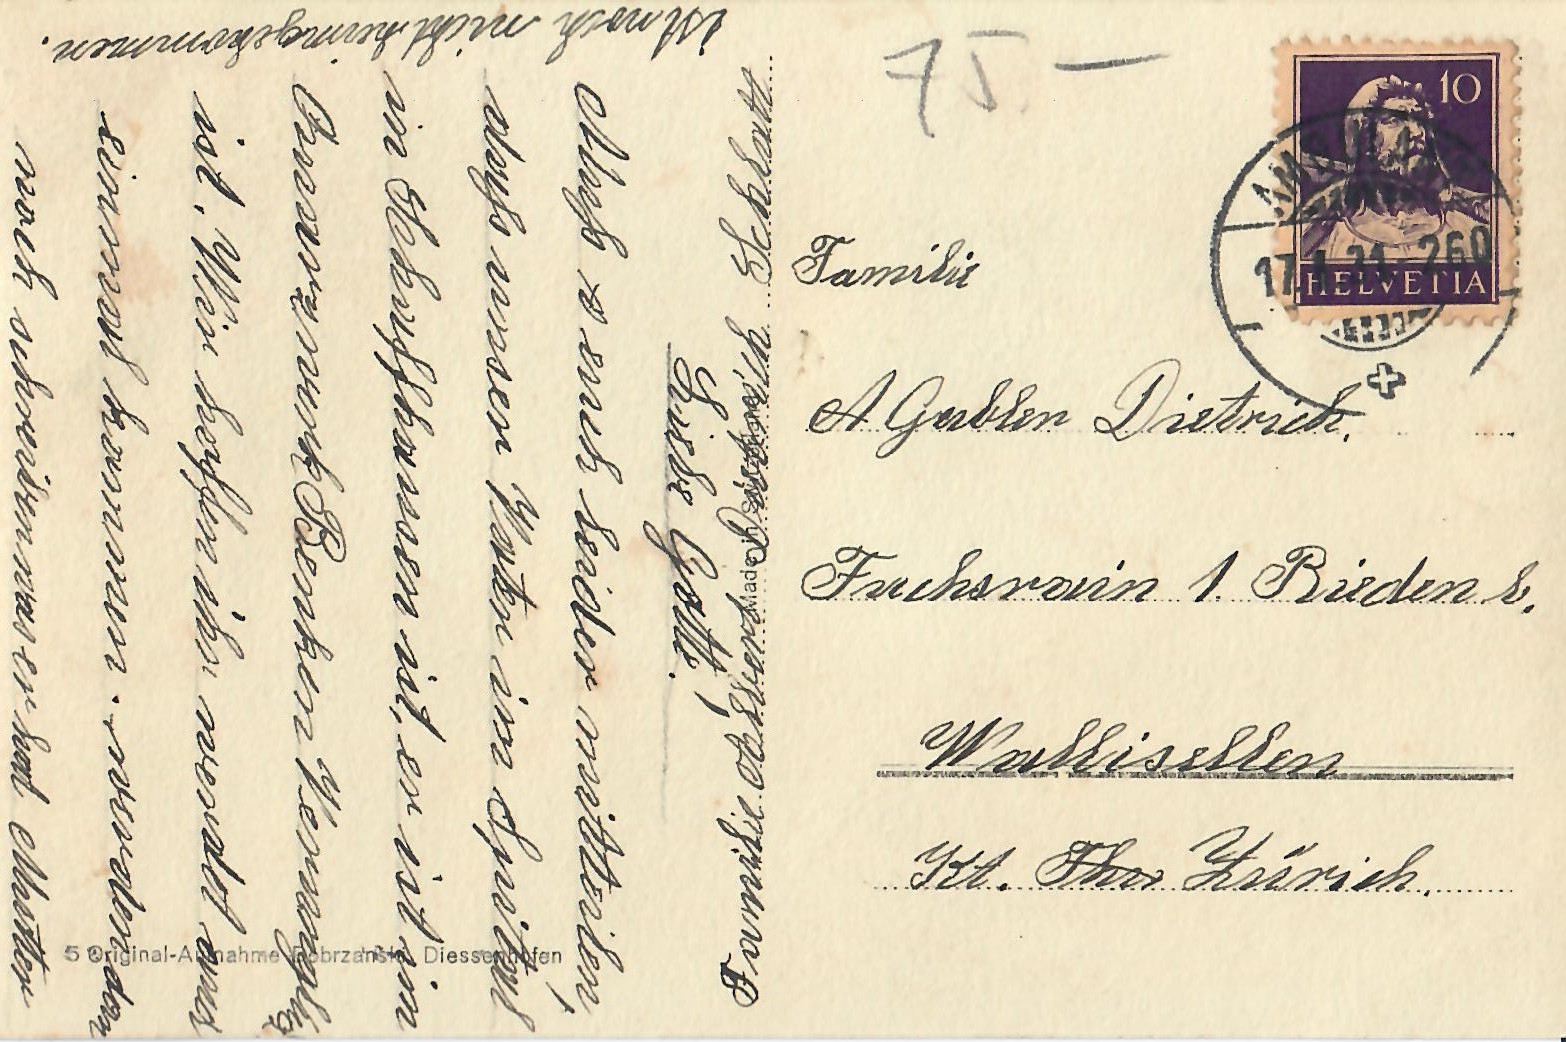 Familie Albert Dietrich Schlatt
Liebe Gotte!
Muss euch leider mitteilen,
dass unser Vater im Spital
in Schaffhausen ist, er ist in
Braunau Benken Verunglü
ist. Wir hoffen ihr werdet uns
einmal kommen. werden dan
noch schreiben was er hat Mutter
ist noch nicht heimgekommen.
75.—
10
HELVETIA
17.I.31.-260
Familie
A Gubler Dietrich.
Fuchsrain 1. Rieden b.
Wallisellen
Kt. Thur Zürich.
Made in
5 Original-Aufnahme Dobrzański, Diessenhofen